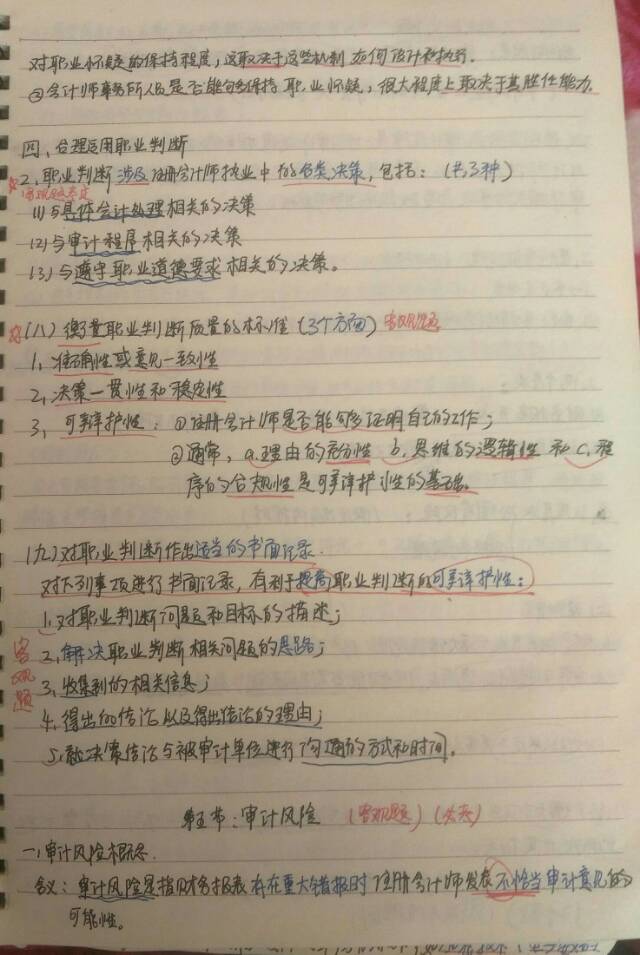 对职业怀疑的保持程度，这取决于这些机制如何设计和执行。
②会计师事务所人员是否能够保持职业怀疑，很大程度上取决于其胜任能力。
四、合理运用职业判断
2、职业判断涉及注册会计师执业中的各类决策，包括：（共3种）
客观题考点
(1)与具体会计处理相关的决策
(2)与审计程序相关的决策
(3)与遵守职业道德要求相关的决策。
(八)衡量职业判断质量的标准（3个方面）客观题
1、准确性或意见一致性
2、决策一贯性和稳定性
3、可辩护性：①注册会计师是否能够证明自己的工作；
②通常，a.理由的充分性 b.思维的逻辑性 和c.程
序的合规性是可辩护性的基础。
(九)对职业判断作出适当的书面记录.
对下列事项进行书面记录，有利于提高职业判断的可辩护性：
1、对职业判断问题和目标的描述；
客观题
2、解决职业判断相关问题的思路；
3、收集到的相关信息；
4、得出的结论以及得出结论的理由；
5、就决策结论与被审计单位进行沟通的方式和时间。
第五节：审计风险（客观题）
一、审计风险概念.
含义：审计风险是指财务报表存在重大错报时注册会计师发表不恰当审计意见的
可能性。